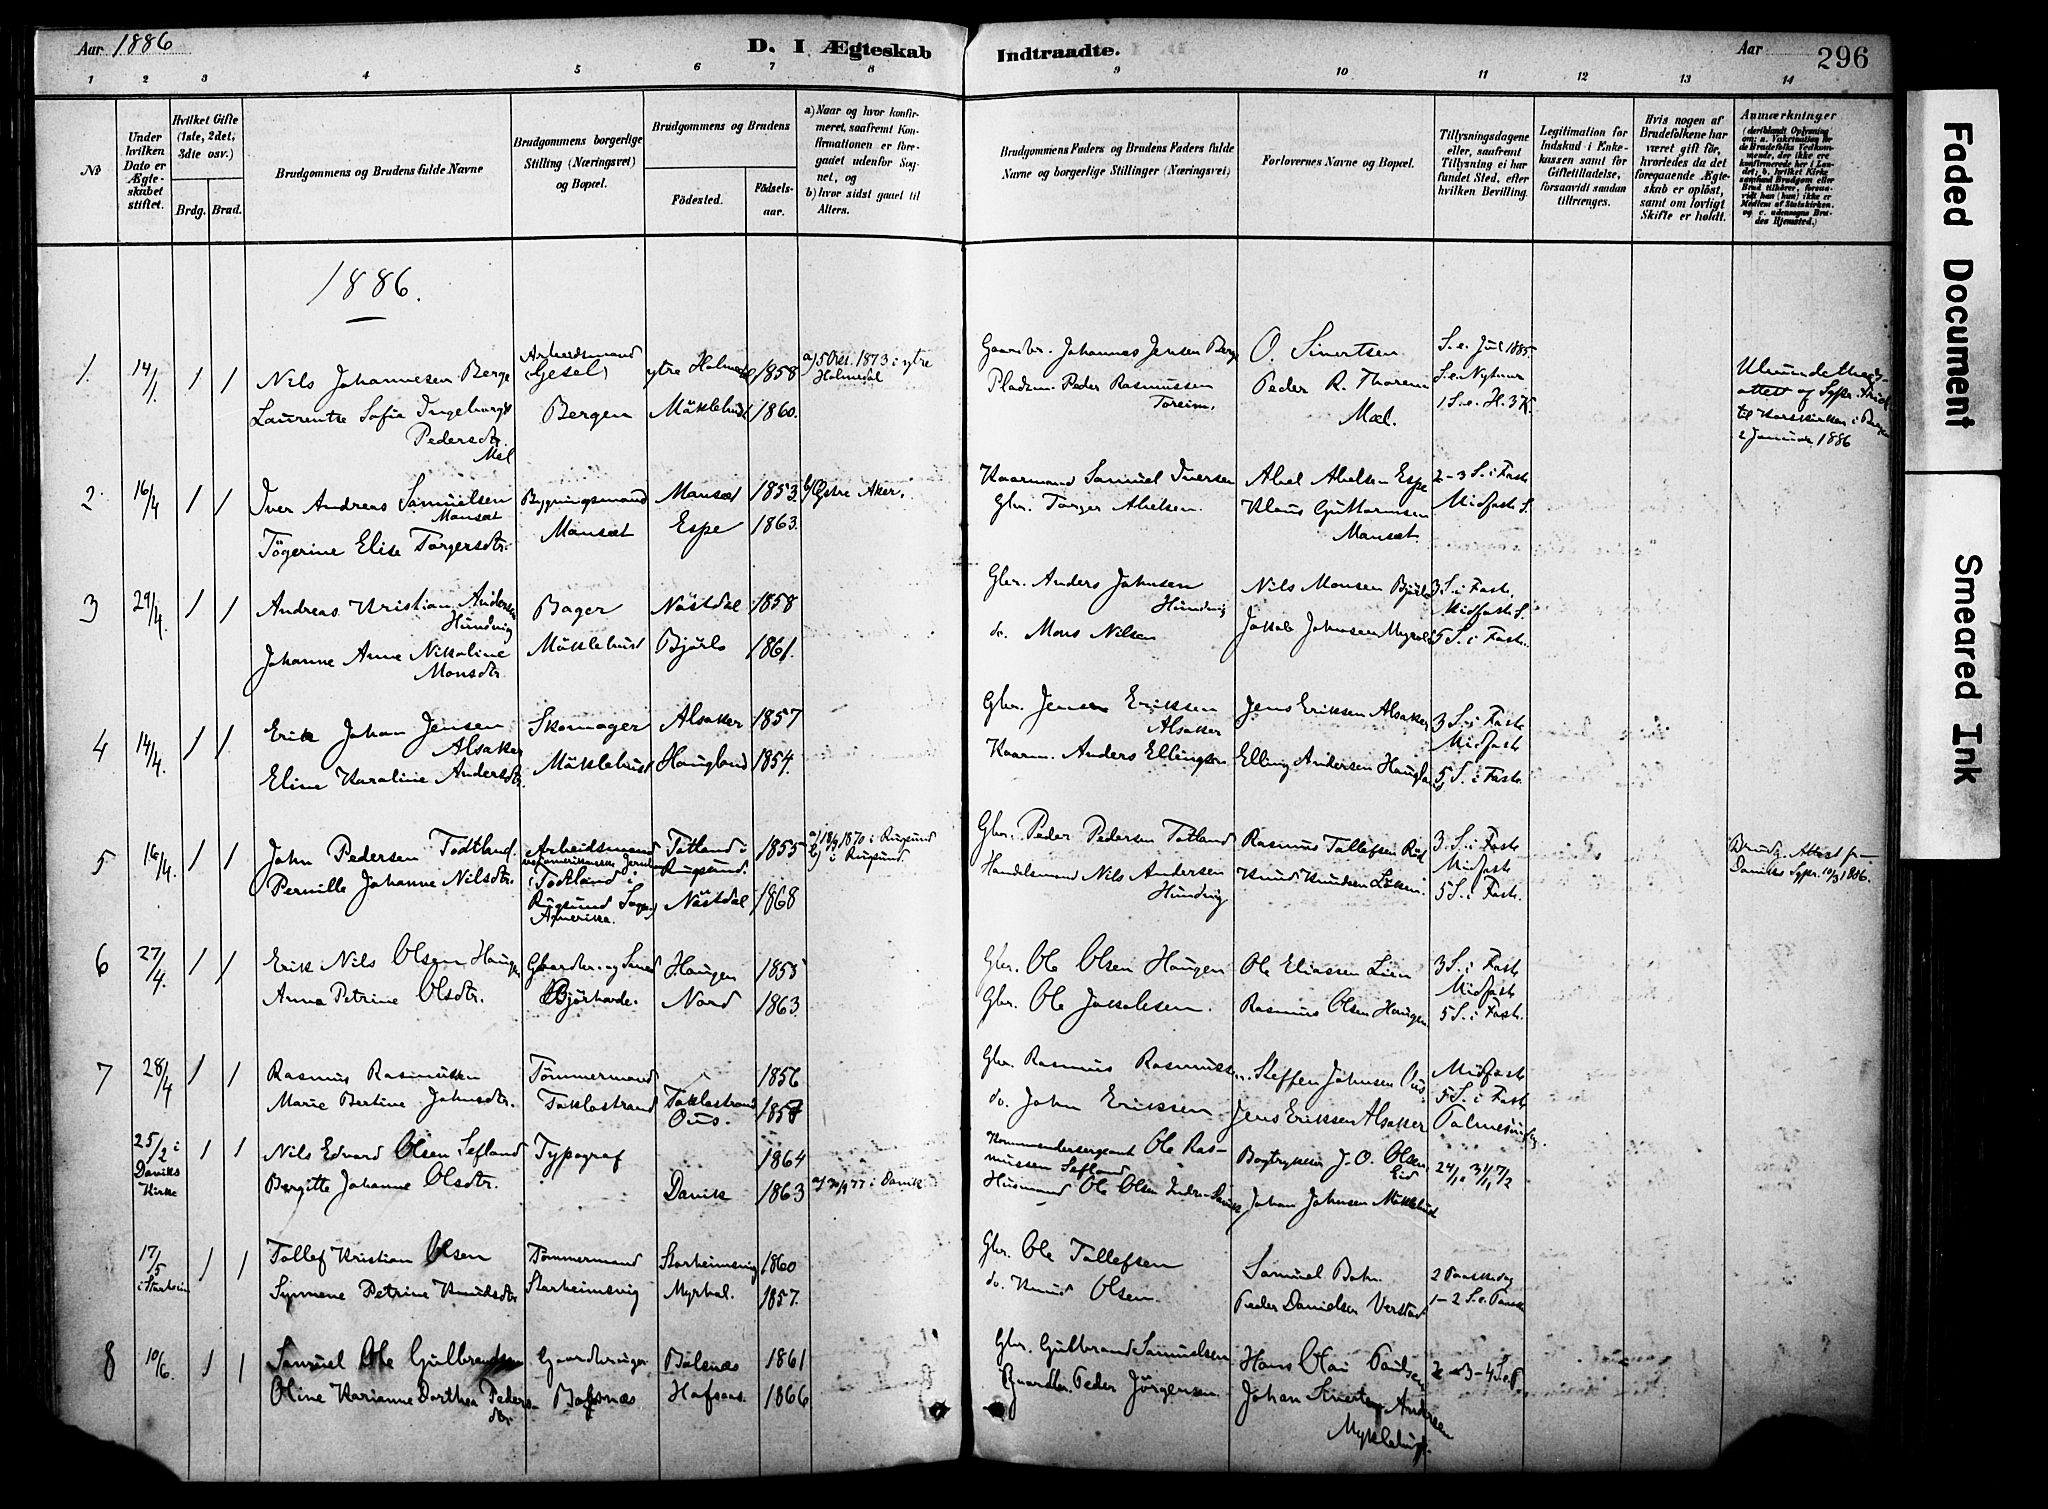 Aar 1886
D. I Ægteskab Indtraadte.
Aar
296
1 2 3 4 5 6 7 8 9 10 11 12 13 14
No
Under hvilken Dato er Ægteskabet stiftet.
Hvilket Gifte (1ste, 2det, 3die osv.)
Brdg. Brud.
Brudgommens og Brudens fulde Navne
Brudgommens borgerlige Stilling (Næringsvei) og Bopæl.
Brudgommens og Brudens
Fødested.
Fødselsaar.
a) Naar og hvor konfirmeret, saafremt Konfirmationen er foregaaet udenfor Sognet, og
b) hvor sidst gaaet til Alters.
Brudgommens Faders og Brudens Faders fulde Navne og borgerlige Stillinger (Næringsvei)
Forlovernes Navne og Bopæl.
Tillysningsdagene eller, saafremt Tillysning ei har fundet Sted, efter hvilken Bevilling.
Legitimation for Indskud i Enkekassen samt for Giftetilladelse, forsaavidt saadan tiltrænges.
Hvis nogen af Brudefolkene har været gift før, hvorledes da det foregaaende Ægteskab er opløst, samt om lovligt Skifte er holdt.
Anmærkninger
1886.
1. 14/1 1 1
Nils Johannesen Berge
Laurentse Sofie Ingeborg
Pedersdtr.
Mel
Arbeidsmand
Bergen
ytre Holmedal 1858
Möklebust 1860.
a) 5 Oct. 1873 i ytre
Holmedal
Gaardbr. Johannes Jensen Berge
Pladsm. Peder Rasmussen
Toreim.
O. Sivertsen
Peder R. Thoreim
Mæl.
S. e. Jul 1885.
S. e. Nytaar
1 S. e. H. 3 K.
2 Januar 1886
2. 16/4 1 1
Iver Andreas Samuelsen
Mansæt
Tögerine Elise Torgersdtr.
Bygningsmand
Mansæt
Mansæt 1853
Espe 1863.
b) Østre Aker.
Kaarmand Samuel Iversen
Gbr. Torger Abelsen.
Abel Abelsen Espe
Klaus Guttormsen
Mansæt.
2-3 S. i Faste
Midfaste S.
3 29/4. 1 1
Andreas Kristian Andersen
Hundvig
Johanne Anne Nikoline
Monsdtr.
Bager
Möklebust
Nöstdal 1858
Björlo 1861.
Gbr. Anders Johnsen
Hundvig
do. Mons Nilsen
Nils Monsen Bjørlo
Jakob Johnsen Myrold
3 S. i Faste.
Midfaste S.
5 S. i Faste.
4 14/4. 1 1
Erik Johan Jensen
Alsaker
Eline Karoline Andersdtr.
Skomager
Möklebust
Alsaker 1857
Haugland 1854.
Gbr. Jens Eriksen
Alsaker
Kaarm. Anders Ellingsen
Jens Eriksen Alsaker
Elling Andersen Haugland
3 S. i Faste
Midfaste
5 S. i Faste
5 16/4. 1 1
John Pedersen Todtland.
Pernille Johanne Nilsdtr.
Arbeidsmand
Todtland i
Rugsund Sogn
Amerika.
Totland i 1855
Rugsund.
Nöstdal 1868
a) 18/9 1870 i Rugsund
b) i Rugsund
Gbr. Peder Pedersen Totland
Handelsmand Nils Andersen
Hundvig
Rasmus Tollefsen Röd
Knud Knudsen Löken
3 S. i Faste
Midfaste
5 S. i Faste.
Brudg. Attest fra
Daviks Sgpr. 10/3 1886.
6 27/4. 1 1
Erik Nils Olsen Haugen
Anna Petrine Olsdtr.
Gaardbr. og Smed
Björhovde.
Haugen 1855
Nord 1863.
Gbr. Ole Olsen Haugen
Gbr. Ole Jakobsen.
Ole Eliassen Lien
Rasmus Olsen Haugen
3 S. i Faste
Midfaste
5 S. i Faste.
7 28/4 1 1
Rasmus Rasmussen
Marie Bertine Johnsdtr.
Tømmermand
Taklostrand
Taklostrand 1856
Ous. 1857
Gbr. Rasmus Rasmussen
do. John Eriksen
Steffen Johnsen Ous
Jens Eriksen Alsaker
Midfaste
5 S. i Faste
Palmesöndag.
25/2 i
Daviks
Kirke
1 1
Nils Edvard Olsen Sefland
Bergitte Johanne Olsdtr.
Typograf
1864
Davik 1863
a) 30/9 77 i Davik
Kommandersergeant Ole Rasmussen Sefland
Husmand Ole Olsen Indre-Davik
Bogtrykker J. O. Olsen
Eid
Johan Johnsen Möklebust
24/1. 31/1 7/2
17/5
i Starheim
1 1
Tollef Kristian Olsen
Synneve Petrine Knudsdtr.
Tømmermand
Starheimsvig
Starheimsvig 1860
Myrhol. 1857.
Gbr. Ole Tollefsen
do. Knud Olsen.
Samuel Bohn
Peder Danielsen Verstad
2 Paaskedag
1-2 S. e. Paaske
8 10/6. 1 1
Samuel Ole Gulbrandsen
Oline Karianne Dorthea Pedersdtr.
Gaardbruger
Bolsnæs
Bolsnæs 1861
Hofsaas. 1866
Gbr. Gulbrand Samuelsen
Gaardbr. Peder Jörgensen
Hans Olai Paulsen
Johan Sivert Andersen
Myklebust.
2-3-4 S. e. P
Faded Document
Smeared Ink